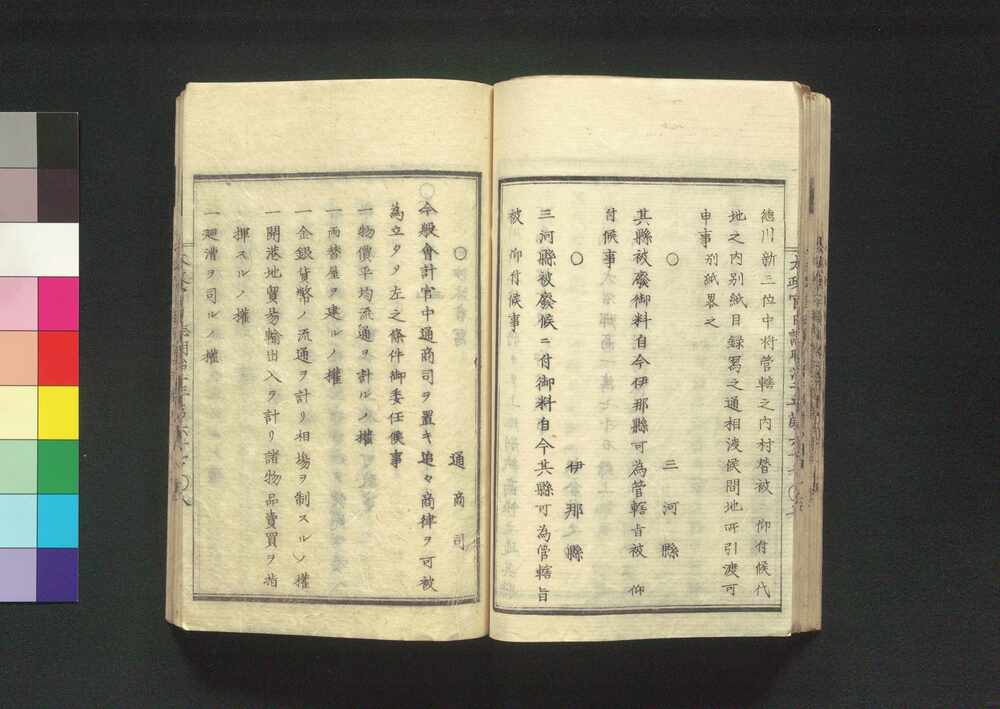 徳川新三位中将管轄之内村替被　仰付候代
地之内別紙目録冩之通相渡候間地所引渡可
申事　別紙畧之
○　三河縣
其縣被廢御料自今伊那縣可為管轄旨被　仰
付候事
○　伊那縣
三河縣被廢候ニ付御料自今其縣可為管轄旨
被　仰付候事
○　通商司
今般會計官中通商司ヲ置キ追々商律ヲ可被
為立タタ左之條件御委任候事
一物價平均流通ヲ計ルノ權
一両替屋ヲ建ルノ權
一金銀貨幣ノ流通ヲ計リ相場ヲ制スルノ權
一開港地貿易輸出入ヲ計リ諸物品賣買ヲ指
揮スルノ權
一廻漕ヲ司ルノ權